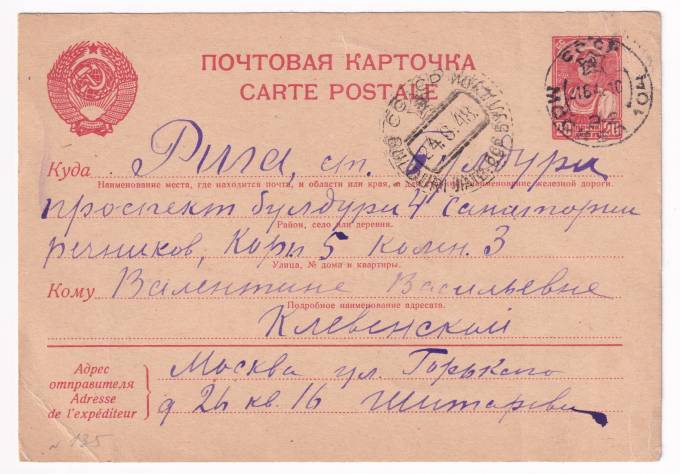 ПОЧТОВАЯ КАРТОЧКА
CARTE POSTALE
Куда Рига, ст. Булдури
Наименование места, где находится почта, и области или края, а наименование железной дороги.
проспект Булдури 4 санатории
Район, село или деревня.
речников, Корп 5 комн. 3
Улица, № дома и квартиры.
Кому Валентине Васильевне
Подробное наименование адресата.
Клевенской
Адрес
отправителя
Adresse
de l'expéditeur
Москва ул. Горького
д 26 кв. 16
СССР
24.8.48
20 20
N 135